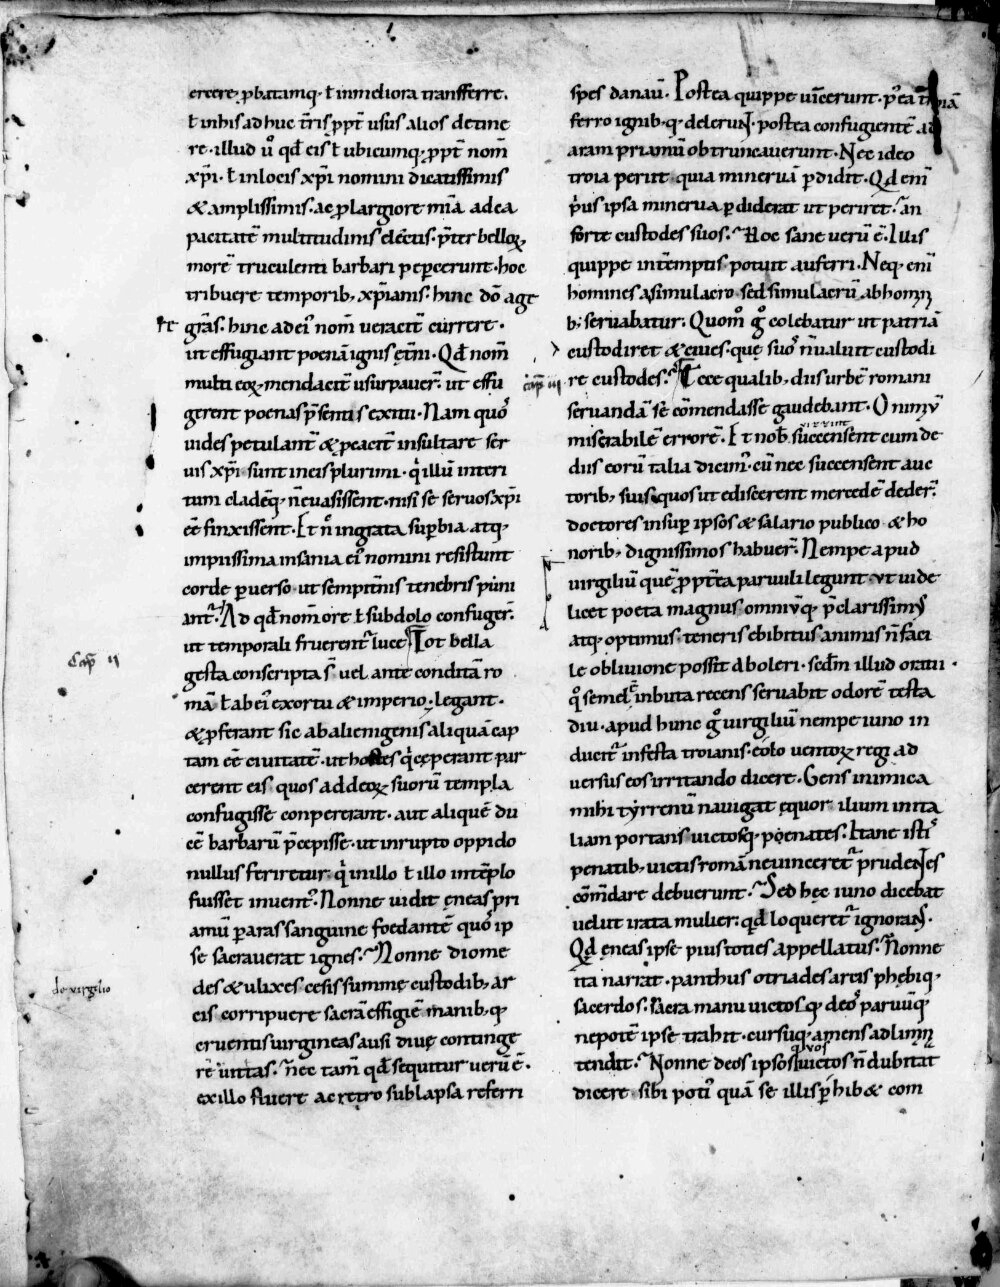 ercere, ꝓbatamq; ł in meliora transferre.
ł in his adhuc t̄ris ꝓpt̄ usus alios detine
re. illud u̅ qd̄ eis ł ubicumq; ꝓpt̄ nom̅
xp̅i. ł in locis xp̅i nomini dicatissimis
& amplissimis. ac ꝓ largiore mi̅a ad ca
pacitate̅ multitudinis electis. p̅t̅er belloꝝ
more̅ truculenti barbari peꝑcerunt. hoc
tribuere temporib; xp̅ianis. hinc do̅ age
re gr̅as. hinc ad ei᾽ nom̅ ueracit̅ currere.
ut effugiant poena̅ ignis et̅ni. Qd̄ nom̅
multi eoꝝ mendacit̅ usurpauer̅. ut effu
gerent poenas p̅sentis exitii. Nam quos᾽
uides petulant̅ & ꝓcacit̅ insultare ser
uis xp̅i. sunt in eis plurimi. q̇ illu̅ interi
tum clade̅q; n̅ euasissent. nisi se seruos xp̅i
e̅e̅ finxissent. Et n̊ ingrata sup̅bia atq;
impiissima insania ei᾽ nomini resistunt
corde ꝑuerso. ut sempit̅nis tenebris puni
ant᾽. Ad qd̄ nom̅ ore ł subdolo confuger̅.
ut temporali fruerent᾽ luce. Tot bella
Cap̅ ii
gesta conscripta s̅ uel ante condita̅ ro
ma̅ ł ab ei᾽ exortu & imperio. legant.
& ꝓferant sic ab alienigenis aliqua̅ cap
tam e̅e̅ ciuitate̅. ut hostes q̇ cęperant par
cerent eis quos ad deoꝝ suoru̅ templa
confugisse conpererant. aut alique̅ du
ce̅ barbaru̅ p̅cepisse. ut inrupto oppido
nullus feriretur. q̇ in illo ł illo te̅plo
fuisset inuent᾽. Nonne uidit ęneas pri
amu̅ ꝑ aras sanguine foedante̅ quos᾽ ip
se sacrauerat ignes. Nonne diome
des & ulixes cesis summę custodib; ar
de uirgilio
cis corripuere sacra̅ effigie̅ manib; q;
cruentis uirgineas ausi diuę continge
re uittas. nec tam̅ qd̄ sequitur ueru̅ e̅.
ex illo fluere ac retro sublapsa referri
spes danau̅. Postea quippe uicerunt. p᾽ea troiā
ferro ignib; q; deleruɴᴛ. postea confugiente̅ ad
aram priamu̅ obtruncauerunt. Nec ideo
troia periit quia minerua̅ ꝑdidit. Qd eni̅
p᾽us ipsa minerua ꝑdiderat ut periret. an
forte custodes suos. Hoc sane ueru̅ e̅. Illis
quippe inte̅mptis potuit auferri. Neq; eni̅
homines a simulacro. sed simulacru̅ ab homi̅
b; seruabatur. Quom᾽ g᾽ colebatur ut patria̅
custodiret & ciues. quę suos᾽ n̅ ualuit custodi
cap̅ iii
re custodes. Ecce qualib; diis urbe̅ romani
seruanda̅ se co̅mendasse gaudebant. O nimiu̅
miserabile̅ errore̅. Et nob̅ succensent cum de
diis eoru̅ talia dicim᾽. cu̅ nec succensent auc
torib; suis. quos ut ediscerent mercede̅ deder̅.
doctores insuꝑ ipsos & salario publico & ho
norib; dignissimos habuer̅. Nempe apud
uirgiliu̅ que̅ ꝓpt̅ea paruuli legunt. ut uide
licet poeta magnus omniu̅q; p̅clarissim᾽
atq; optimus. teneris ebibitus animis n̅ faci
le obliuione possit aboleri. sedm̅ illud oratii.
q᾽ semel e̅ inbuta recens seruabit odore̅ testa
diu. apud hunc g᾽ uirgiliu̅ nempe iuno in
ducit᾽ infesta troianis. eolo uentoꝝ regi ad
uersus eos irritando dicere. Gens inimica
mihi tyrrenu̅ nauigat ęquor. ilium in ita
liam portans uictosq; poenates. Itane istis᾽
penatib; uictis roma̅ ne uinceret᾽ prudenᴛes
co̅mdare debuerunt. Sed hęc iuno dicebat
uelut irata mulier. qd̄ loqueret᾽ ignoraɴs.
Qd̄ ęneas ipse pius toties appellatus. nonne
ita narrat. panthus otriades arcis phębiq;
sacerdos. sacra manu uictosq; deos᾽ paruu̅q;
nepote̅ ipse trahit. cursuq; amens ad limi̅a
tendit. Nonne deos ipsos quos uictos n̅ dubitat
dicere sibi poti᾽ qua̅ se illis ꝑhib& com